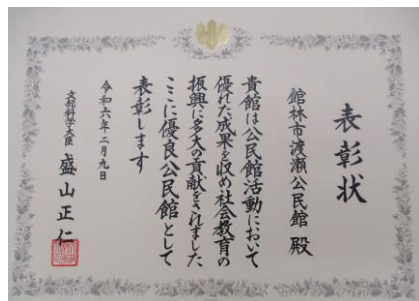 表彰状
館林市渡瀬公民館 殿
貴館は公民館活動において
優れた成果を収め社会教育の
振興に多大の貢献をされました
ここに優良公民館として
表彰します
令和六年二月九日
文部科学大臣 盛山正仁